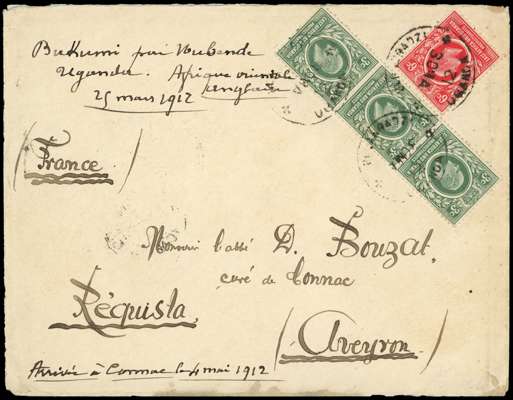 Bukumi par Mubende
Uganda. Afrique orientale
anglaise
25 mars 1912
(France)
Monsieur l'abbé D. Bouzat,
curé de Connac
Réquista
(Aveyron)
Arrivée à Connac le 4 mai 1912